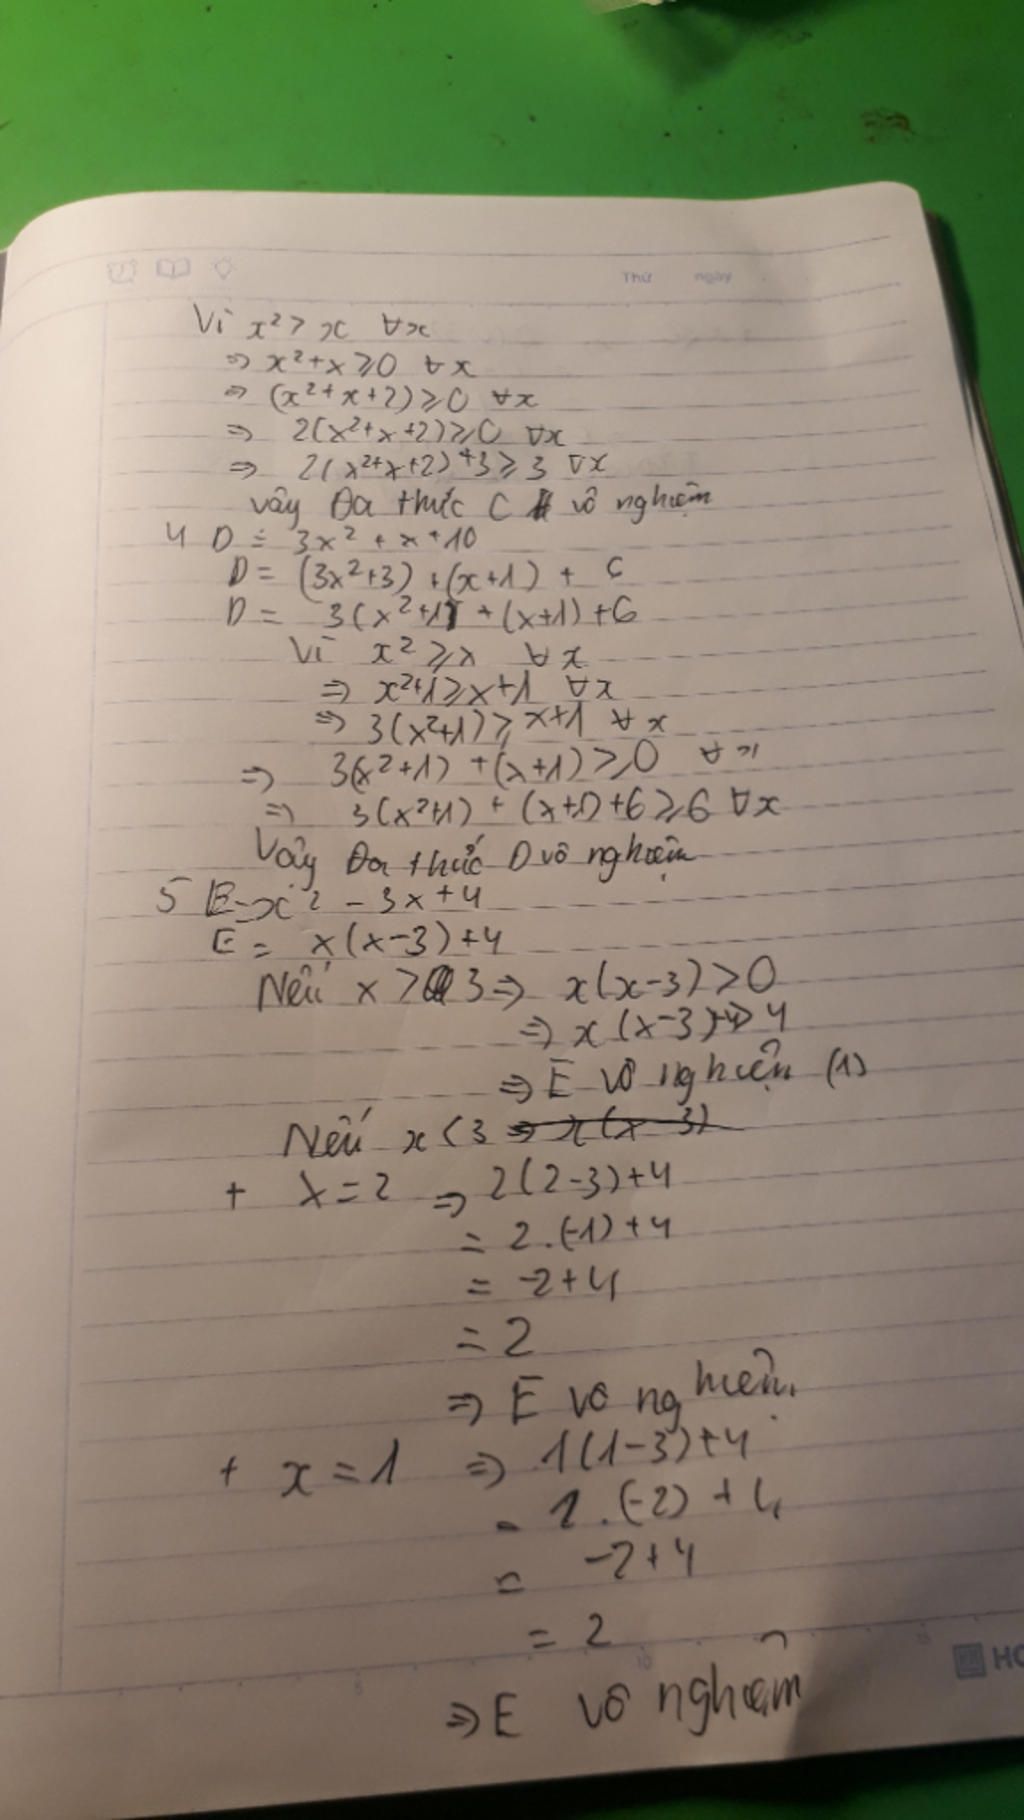 Thứ ngày
Vì x² > x ∀x
⇒ x² + x ⩾ 0 ∀x
⇒ (x² + x + 2) ⩾ 0 ∀x
⇒ 2(x² + x + 2) ⩾ 0 ∀x
⇒ 2(x² + x + 2) + 3 ⩾ 3 ∀x
vậy Đa thức C vô nghiệm
4 D = 3x² + x + 10
D = (3x² + 3) + (x + 1) + 6
D = 3(x² + 1) + (x + 1) + 6
Vì x² ⩾ x ∀x
⇒ x² + 1 ⩾ x + 1 ∀x
⇒ 3(x² + 1) ⩾ x + 1 ∀x
⇒ 3(x² + 1) + (x + 1) ⩾ 0 ∀x
⇒ 3(x² + 1) + (x + 1) + 6 ⩾ 6 ∀x
Vậy Đa thức D vô nghiệm
5 E = x² - 3x + 4
E = x(x - 3) + 4
Nếu x > 3 ⇒ x(x - 3) > 0
⇒ x(x - 3) + 4 > 4
⇒ E vô nghiệm (1)
Nếu x < 3 ⇒ x(x - 3)
+ x = 2 ⇒ 2(2 - 3) + 4
= 2.(-1) + 4
= -2 + 4
= 2
⇒ E vô nghiệm
+ x = 1 ⇒ 1(1 - 3) + 4
= 1.(-2) + 4
= -2 + 4
= 2
10
⇒ E vô nghiệm